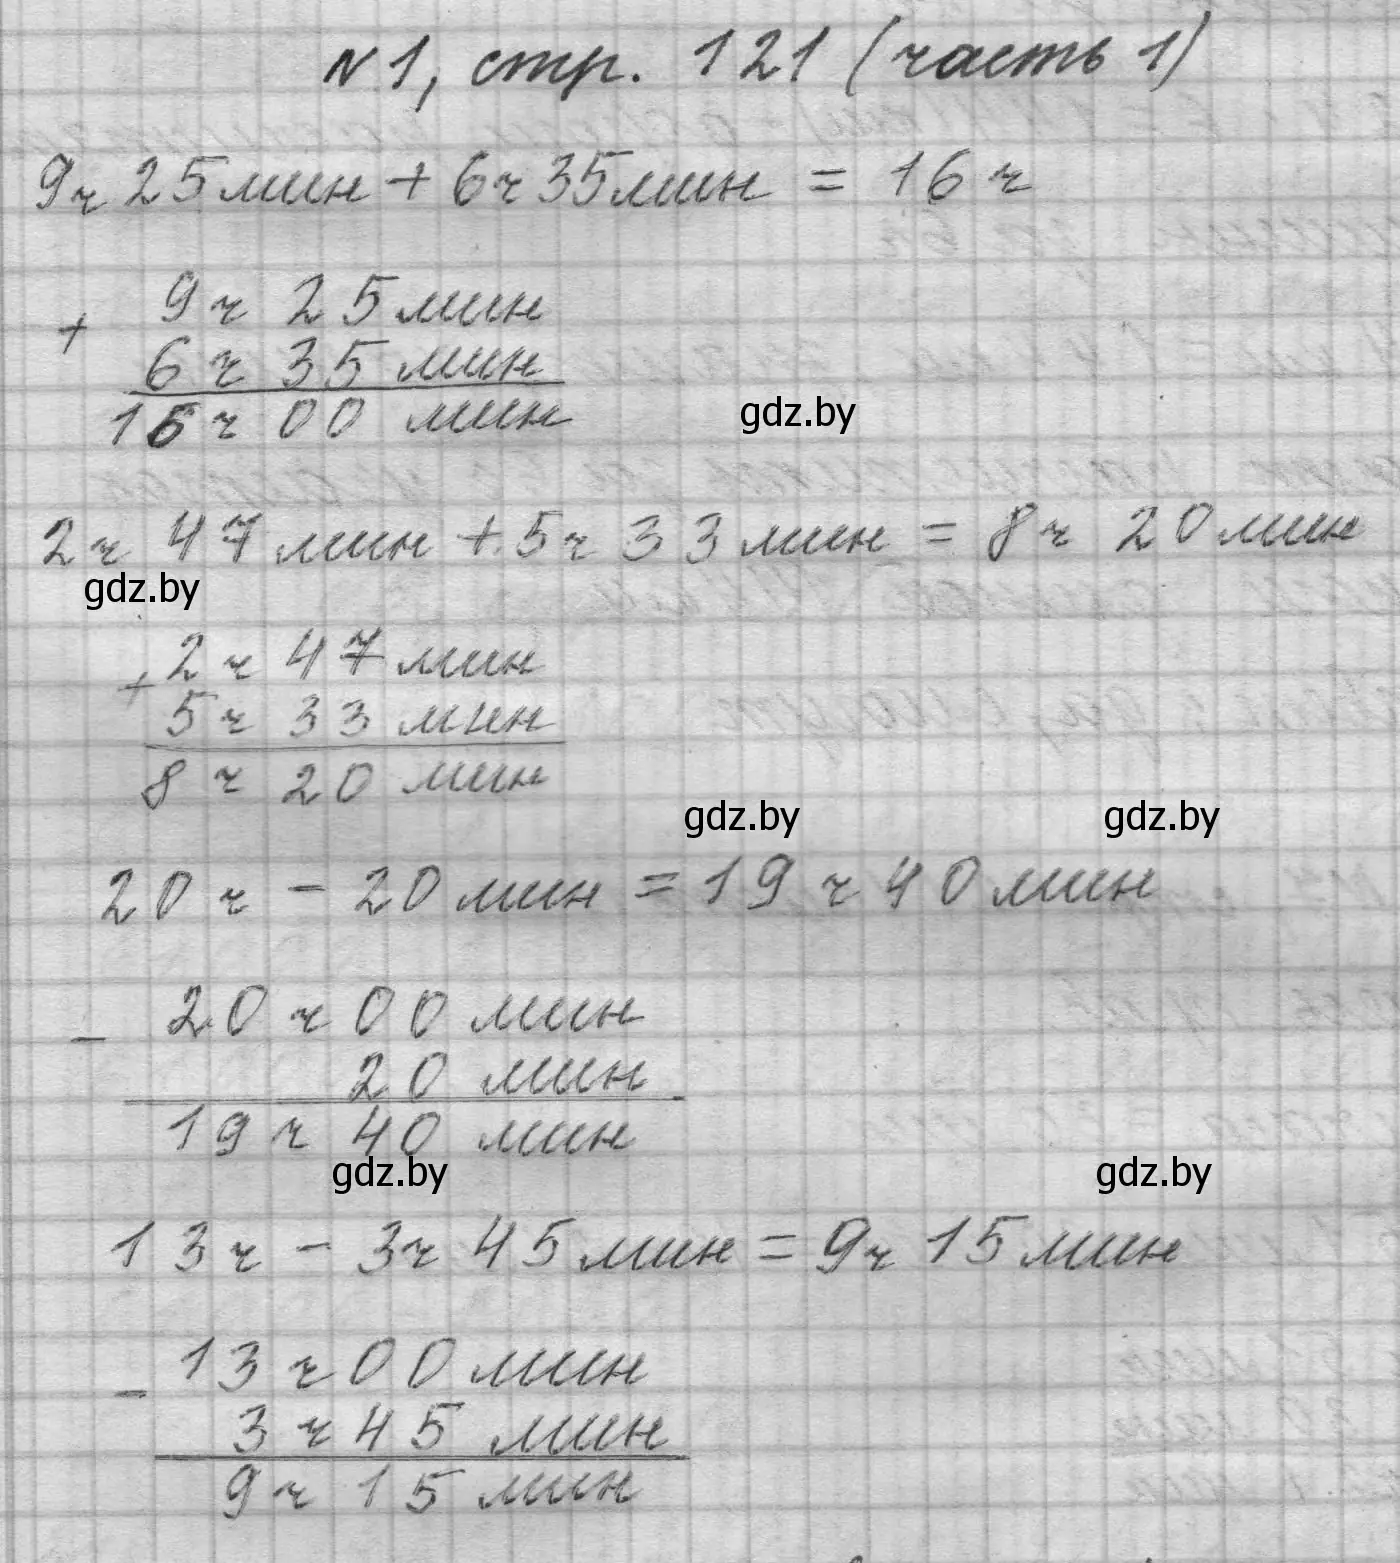 №1, стр. 121 (часть 1)
9ч 25мин + 6ч 35мин = 16 ч
9ч 25мин
+
6ч 35 мин
16ч 00 мин
gdz.by
2ч 47 мин + 5ч 33 мин = 8ч 20 мин
gdz.by
2ч 47 мин
+
5ч 33 мин
8 ч 20 мин
gdz.by gdz.by
20 ч - 20 мин = 19 ч 40 мин
20 ч 00 мин
-
20 мин
19 ч 40 мин
gdz.by gdz.by
13ч - 3ч 45 мин = 9ч 15 мин
13ч 00 мин
-
3ч 45 мин
9ч 15 мин